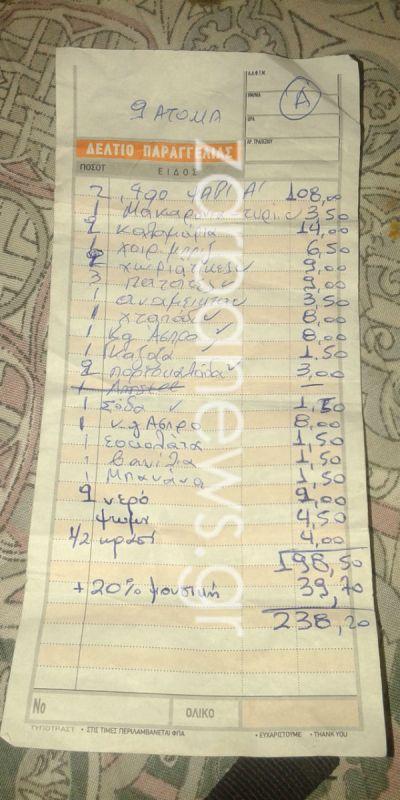 Α.Δ.Φ.Τ.Μ.
9 ΑΤΟΜΑ
Α
ΩΡΑ
ΑΡ. ΤΡΑΠΕΖΙΟΥ
ΔΕΛΤΙΟ ΠΑΡΑΓΓΕΛΙΑΣ
ΠΟΣΟΤ ΕΙΔΟΣ
2 ψΑΡΙ Α' 108,00
1 Μακαρόνια τυρί 3,50
2 καλαμάρια 14,00
1 χοιρ. μπριζ 6,50
2 χωριάτικες 9,00
3 πατάτες 9,00
1 αναμεικτη 3,50
1 χταπόδι 8,00
1 κg Ασπρο 8,00
1 1,50
2 πορτοκαλάδα 3,00
1 —
1 Σόδα 1,50
1 κg Ασπρο 8,00
1 Σοκολάτα 1,50
1 Βανίλα 1,50
1 Μπανάνα 1,50
9 νερό 9,00
ψωμι 4,50
1/2 κρασί 4,00
198,50
+20% μουσική 39,70
238,20
zarpanews.gr
Νο ΟΛΙΚΟ
ΤΥΠΟΤΡΑΣΤ • ΣΤΙΣ ΤΙΜΕΣ ΠΕΡΙΛΑΜΒΑΝΕΤΑΙ ΦΠΑ • ΕΥΧΑΡΙΣΤΟΥΜΕ • THANK YOU